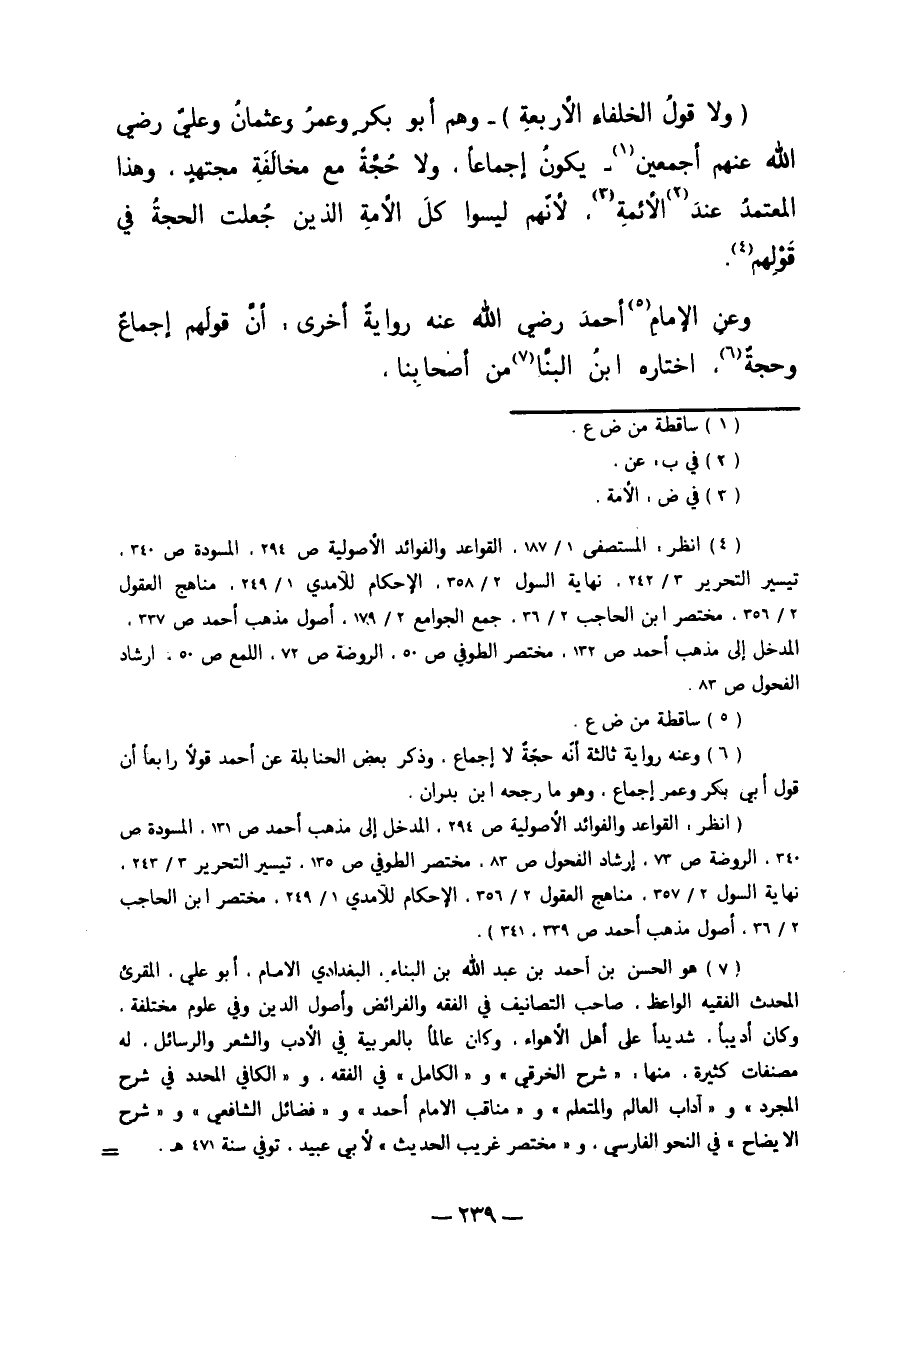 ( ولا قولُ الخلفاء الأربعةِ ) - وهم أبو بكرٍ وعمرُ وعثمانُ وعليٌ رضي
الله عنهم أجمعين(١) - يكونُ إجماعاً ، ولا حُجَّةٌ مع مخالَفَةِ مجتهدٍ ، وهذا
المعتمدُ عندَ(٢) الأئمةِ(٣) ، لأنَّهم ليسوا كلَ الأمةِ الذين جُعلت الحجةُ في
قَوْلِهم(٤) .
وعنِ الإمامِ(٥) أحمدَ رضي الله عنه روايةٌ أخرى : أنَّ قولَهم إجماعٌ
وحجةٌ(٦) ، اختاره ابنُ البنَّا(٧) من أصحابِنا ،
( ١ ) ساقطة من ض ع .
( ٢ ) في ب : عن .
( ٣ ) في ض : الأمة .
( ٤ ) انظر : المستصفى ١ / ١٨٧ ، القواعد والفوائد الأصولية ص ٢٩٤ ، المسودة ص ٣٤٠ ،
تيسير التحرير ٣ / ٢٤٢ ، نهاية السول ٢ / ٣٥٨ ، الإحكام للآمدي ١ / ٢٤٩ ، مناهج العقول
٢ / ٣٥٦ ، مختصر ابن الحاجب ٢ / ٣٦ ، جمع الجوامع ٢ / ١٧٩ ، أصول مذهب أحمد ص ٣٣٧ ،
المدخل إلى مذهب أحمد ص ١٣٢ ، مختصر الطوفي ص ٥٠ ، الروضة ص ٧٢ ، اللمع ص ٥٠ ، ارشاد
الفحول ص ٨٣ .
( ٥ ) ساقطة من ض ع .
( ٦ ) وعنه رواية ثالثة أنّه حجّةٌ لا إجماع ، وذكر بعض الحنابلة عن أحمد قولاً رابعاً أن
قول أبي بكر وعمر إجماع ، وهو ما رجحه ابن بدران .
( انظر : القواعد والفوائد الأصولية ص ٢٩٤ ، المدخل إلى مذهب أحمد ص ١٣١ ، المسودة ص
٣٤٠ ، الروضة ص ٧٣ ، إرشاد الفحول ص ٨٣ ، مختصر الطوفي ص ١٣٥ ، تيسير التحرير ٣ / ٢٤٣ ،
نهاية السول ٢ / ٣٥٧ ، مناهج العقول ٢ / ٣٥٦ ، الإحكام للآمدي ١ / ٢٤٩ ، مختصر ابن الحاجب
٢ / ٣٦ ، أصول مذهب أحمد ص ٣٣٩ ، ٣٤١ ) .
( ٧ ) هو الحسن بن أحمد بن عبد الله بن البناء ، البغدادي الامام ، أبو علي ، المقرئ
المحدث الفقيه الواعظ ، صاحب التصانيف في الفقه والفرائض وأصول الدين وفي علوم مختلفة ،
وكان أديباً ، شديداً على أهل الأهواء ، وكان عالماً بالعربية في الأدب والشعر والرسائل ، له
مصنفات كثيرة ، منها : « شرح الخرقي » و « الكامل » في الفقه ، و « الكافي المحدد في شرح
المجرد » و « آداب العالم والمتعلم » و « مناقب الامام أحمد » و « فضائل الشافعي » و « شرح
الايضاح » في النحو الفارسي ، و « مختصر غريب الحديث » لأبي عبيد ، توفي سنة ٤٧١ هـ . =
— ٢٣٩ —